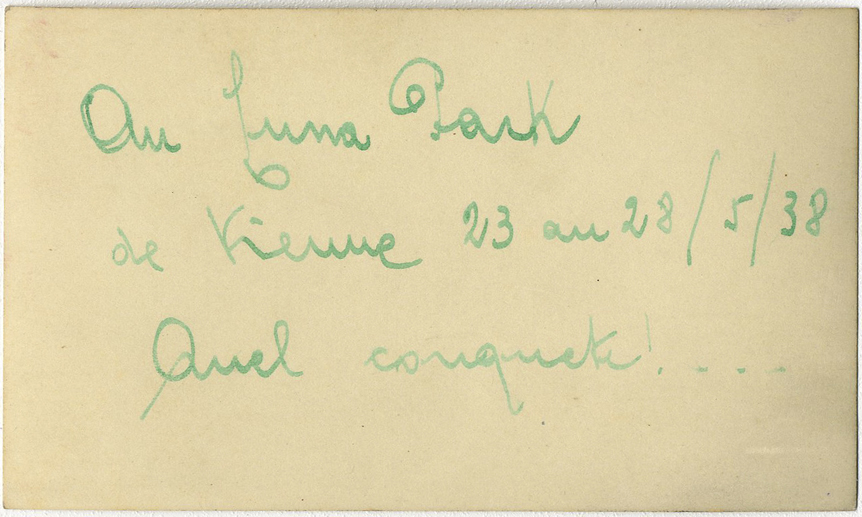 Au Luna Park
de Vienne 23 au 28/5/38
Quel conquete!....